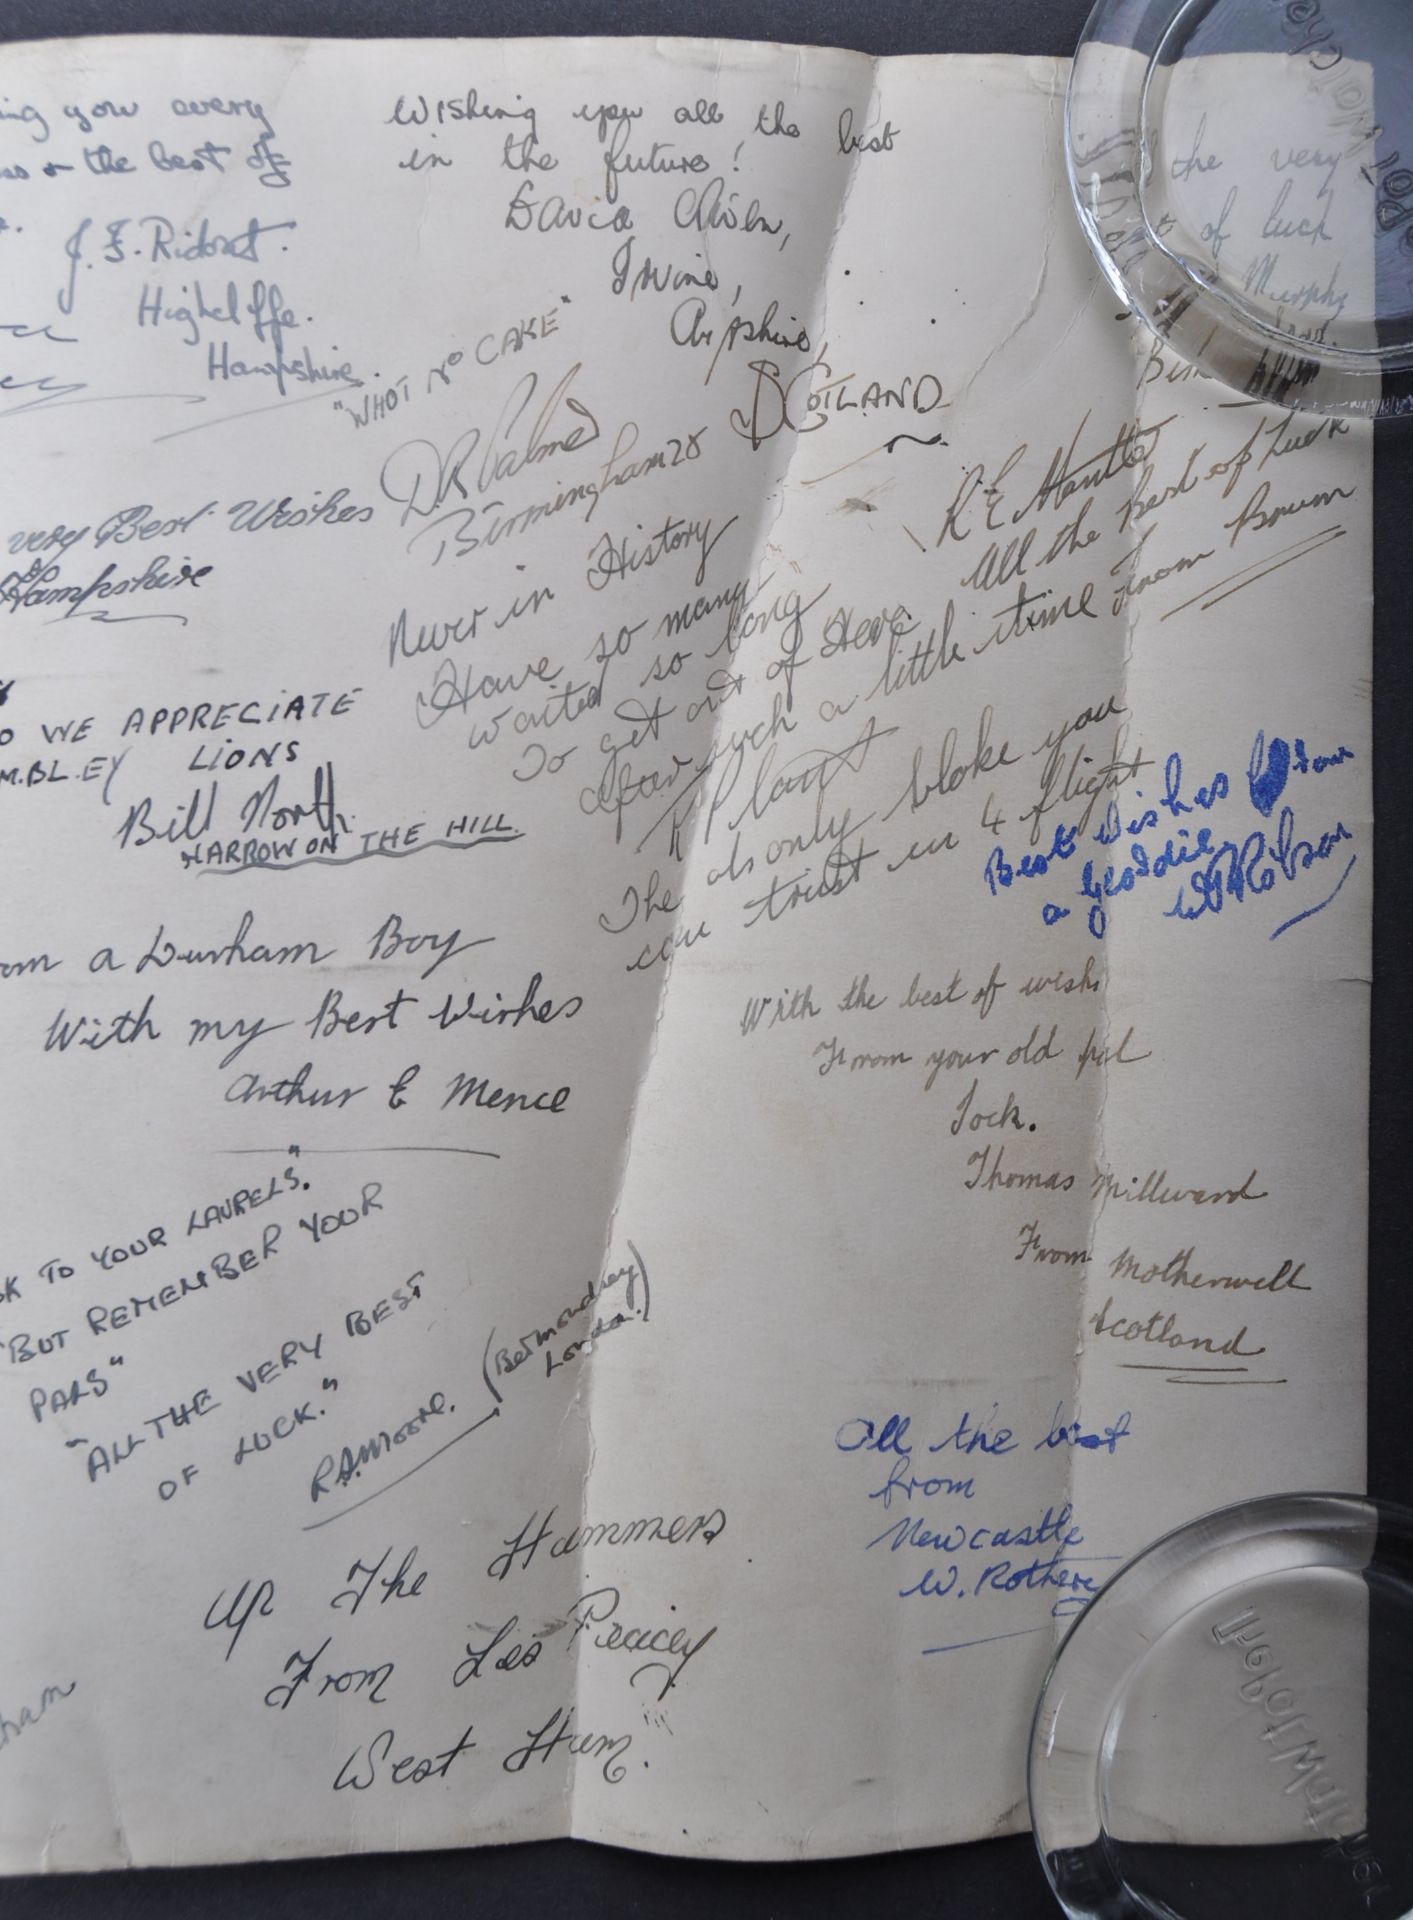 ing you every
ss + the best of
J. F. Ridout.
Highcliffe.
Hampshire.
Wishing you all the best
in the future!
David
Irvine,
SCOTLAND
the very
of luck
Murphy
"WHOT NO CAKE"
D R Palmer
Birmingham 28
very Best Wishes
Hampshire
R E Mantle
All the Best of Luck
from Brum
Never in History
Have so many
waited so long
To get out of Here
after such a little time
R Plant
The only bloke you
can trust in 4 flight
WE APPRECIATE
M.BL.EY LIONS
Bill North.
HARROW ON THE HILL.
Best wishes from
a geordie
Robson
om a Durham Boy
With my Best Wishes
Arthur E Mence
With the best of wish
From your old pal
Jock.
Thomas Millward
From Motherwell
Scotland
TO YOUR LAURELS."
"BUT REMEMBER YOUR
PALS"
"ALL THE VERY BEST
OF LUCK."
R.A.Moore. (Bermondsey
London.)
All the best
from
Newcastle
W. Rothere
Up The Hammers
From Les
West Ham.